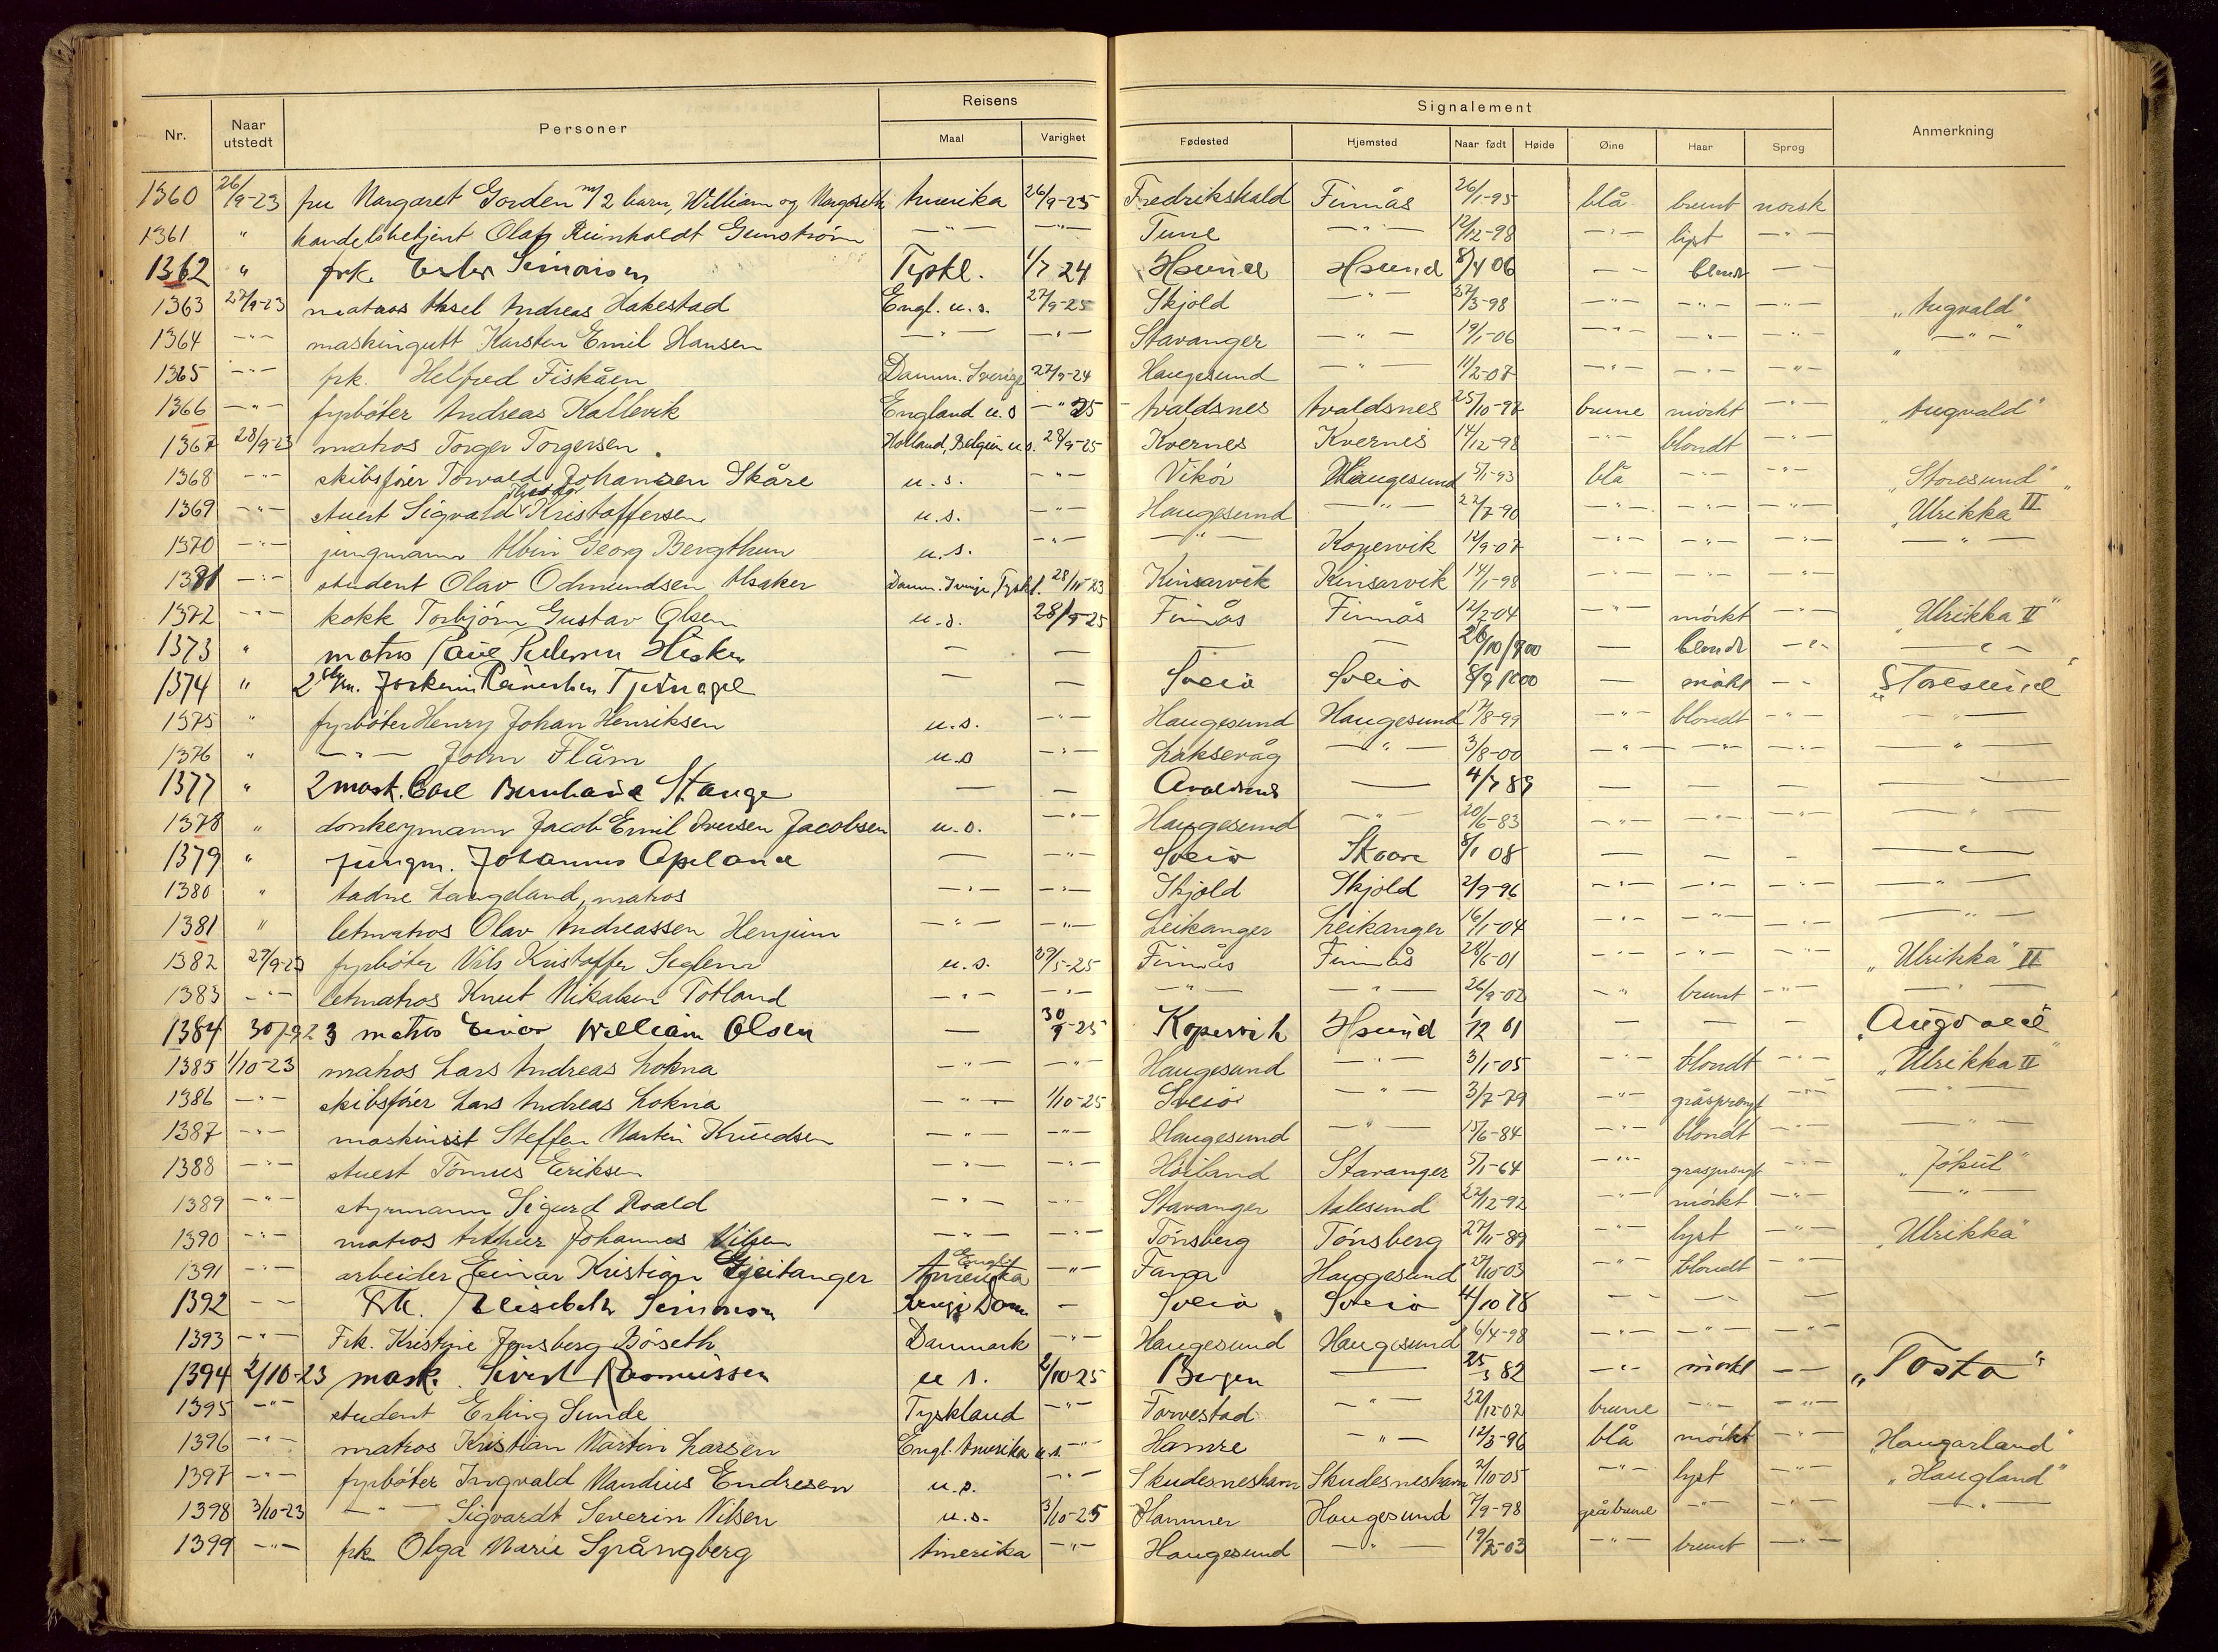 Reisens
Signalement
Nr. Naar utstedt Personer Maal Varighet Fødested Hjemsted Naar født Høide Øine Haar Sprog Anmerkning
1360 26/9-23 fru Margaret Gorden m/2 barn, William og Margareth Amerika 26/9-25 Fredrikshald Finnås 26/1-95 blå brunt norsk
1361 " handelsbetjent Olaf Reinholdt Genstrøm —"— —"— Tune —"— 12/12-98 —"— lyst —"—
1362 " frk. Ester Simonsen Tyskl. 1/7 24 Hsund Hsund 8/4 06 — — blondt — —
1363 27/9-23 matros Aksel Andreas Hakestad Engl. u.s. 27/9-25 Skjold —"— 27/3-98 —"— —"— —"— "Augvald"
1364 —"— maskingutt Karsten Emil Hansen —"— —"— Stavanger —"— 19/1-06 —"— —"— —"— "—"—"
1365 —"— frk. Helfred Fiskåen Danm. Sverige 27/9-24 Haugesund —"— 11/2-07 —"— —"— —"—
1366 —"— fyrbøter Andreas Kallevik England u.s —"—25 Avaldsnes Avaldsnes 25/10-97 brune mørkt —"— "Augvald"
1367 28/9-23 matros Torger Torgersen Holland, Belgien u.s. 28/9-25 Kvernes Kvernes 14/12-98 —"— blondt —"—
1368 —"— skibsfører Torvald Johansen Skåre u.s. —"— Vikør Haugesund 5/1-93 blå —"— —"— "Storesund"
1369 —"— stuert Sigvald Theodor Kristoffersen u.s. —"— Haugesund —"— 22/7-90 —"— —"— —"— "Ulrikka II"
1370 —"— jungmann Albin Georg Bergthun u.s. —"— —"— Kopervik 12/9-07 —"— —"— —"— —"—
1371 —"— student Olav Odmundsen Alsaker Danm. Sverige, Tyskl. 28/11-23 Kinsarvik Kinsarvik 14/1-98 —"— —"— —"—
1372 —"— kokk Torbjørn Gustav Olsen u.s. 28/9-25 Finnås Finnås 12/2-04 —"— mørkt —"— "Ulrikka II"
1373 " matros Pedersen — — — — 26/10/900 — blondt —"— —"—
1374 " Tjernagel — — Sveio Sveio 8/9 1900 — mørkt —"— "Storesund"
1375 " fyrbøter Henry Johan Henriksen u.s. —"— Haugesund Haugesund 17/8-99 —"— blondt —"— —"—
1376 " —"— John Flåm u.s —"— Laksevåg —"— 3/8-00 —"— —"— —"— —"—
1377 " 2 mask. Carl Bernhard Stange — — Avaldsnes — 4/7 89 — — — —
1378 " donkeymann Jacob Emil Iversen Jacobsen u.s. —"— Haugesund —"— 20/6-83 —"— —"— —"— —"—
1379 " jungm. Johannes Apeland — —"— Sveio Skaare 8/1 08 — — — —"—
1380 " Ladne Langeland, matros —"— —"— Skjold Skjold 2/9-96 —"— —"— —"— —"—
1381 " letmatros Olav Andreassen Henjum —"— —"— Leikanger Leikanger 16/1-04 —"— —"— —"— —"—
1382 29/9-23 fyrbøter Nils Kristoffer u.s. 29/5-25 Finnås Finnås 28/6-01 —"— —"— —"— "Ulrikka" II
1383 —"— letmatros Knut Nikalsen Totland —"— —"— —"— —"— 26/9-02 —"— brunt —"— —"—
1384 30/9-23 matros Einar William Olsen — 30/9-25 Kopervik Hsund 1/12 01 — — — "Augvald"
1385 1/10-23 matros Lars Andreas Lokna —"— —"— Haugesund —"— 3/1-05 —"— blondt —"— "Ulrikka II"
1386 —"— skibsfører Lars Andreas Lokna —"— 1/10-25 Sveio —"— 3/7-79 —"— gråsprengt —"— —"—
1387 —"— maskinist Steffen Martin Knudsen —"— —"— Haugesund —"— 15/6-84 —"— blondt —"— —"—
1388 —"— stuert Tønnes Eriksen —"— —"— Høiland Stavanger 5/1-64 —"— gråsprengt —"— "Jøkul"
1389 —"— styrmann Sigurd Roald —"— —"— Stavanger Aalesund 22/12-92 —"— mørkt —"— —"—
1390 —"— matros Arthur Johannes Nilsen —"— —"— Tønsberg Tønsberg 27/11-89 —"— lyst —"— "Ulrikka"
1391 —"— arbeider Einar Kristian Gjeitanger Engl Amerika —"— Fana Haugesund 27/10-03 —"— blondt —"—
1392 —"— Frk. Elisabeth Simonsen Danm — Sveio Sveio 4/10 78 — — —
1393 —"— Frk. Kristine Børseth Danmark —"— Haugesund Haugesund 6/4-98 —"— —"— —"—
1394 2/10-23 mask. Sivert Rasmussen u s. 2/10-25 Bergen — 25/3 82 —"— mørkt — "Tosto"
1395 —"— student Erling Sunde Tyskland —"— Torvestad —"— 22/12-02 brune —"— —"—
1396 —"— matros Kristian Martin Larsen Engl. Amerika u.s. —"— Hamre —"— 12/3-96 blå mørkt —"— "Haugarland"
1397 —"— fyrbøter Ingvald Mandius Endresen u.s. —"— Skudesneshavn Skudesneshavn 2/10-05 —"— lyst —"— "Haugland"
1398 3/10-23 —"— Sigvardt Severin Nilsen u.s. 3/10-25 Hammer Haugesund 7/9-98 gråbrune —"— —"— —"—
1399 —"— frk. Olga Marie Språngberg Amerika —"— Haugesund —"— 19/2-03 —"— brunt —"—